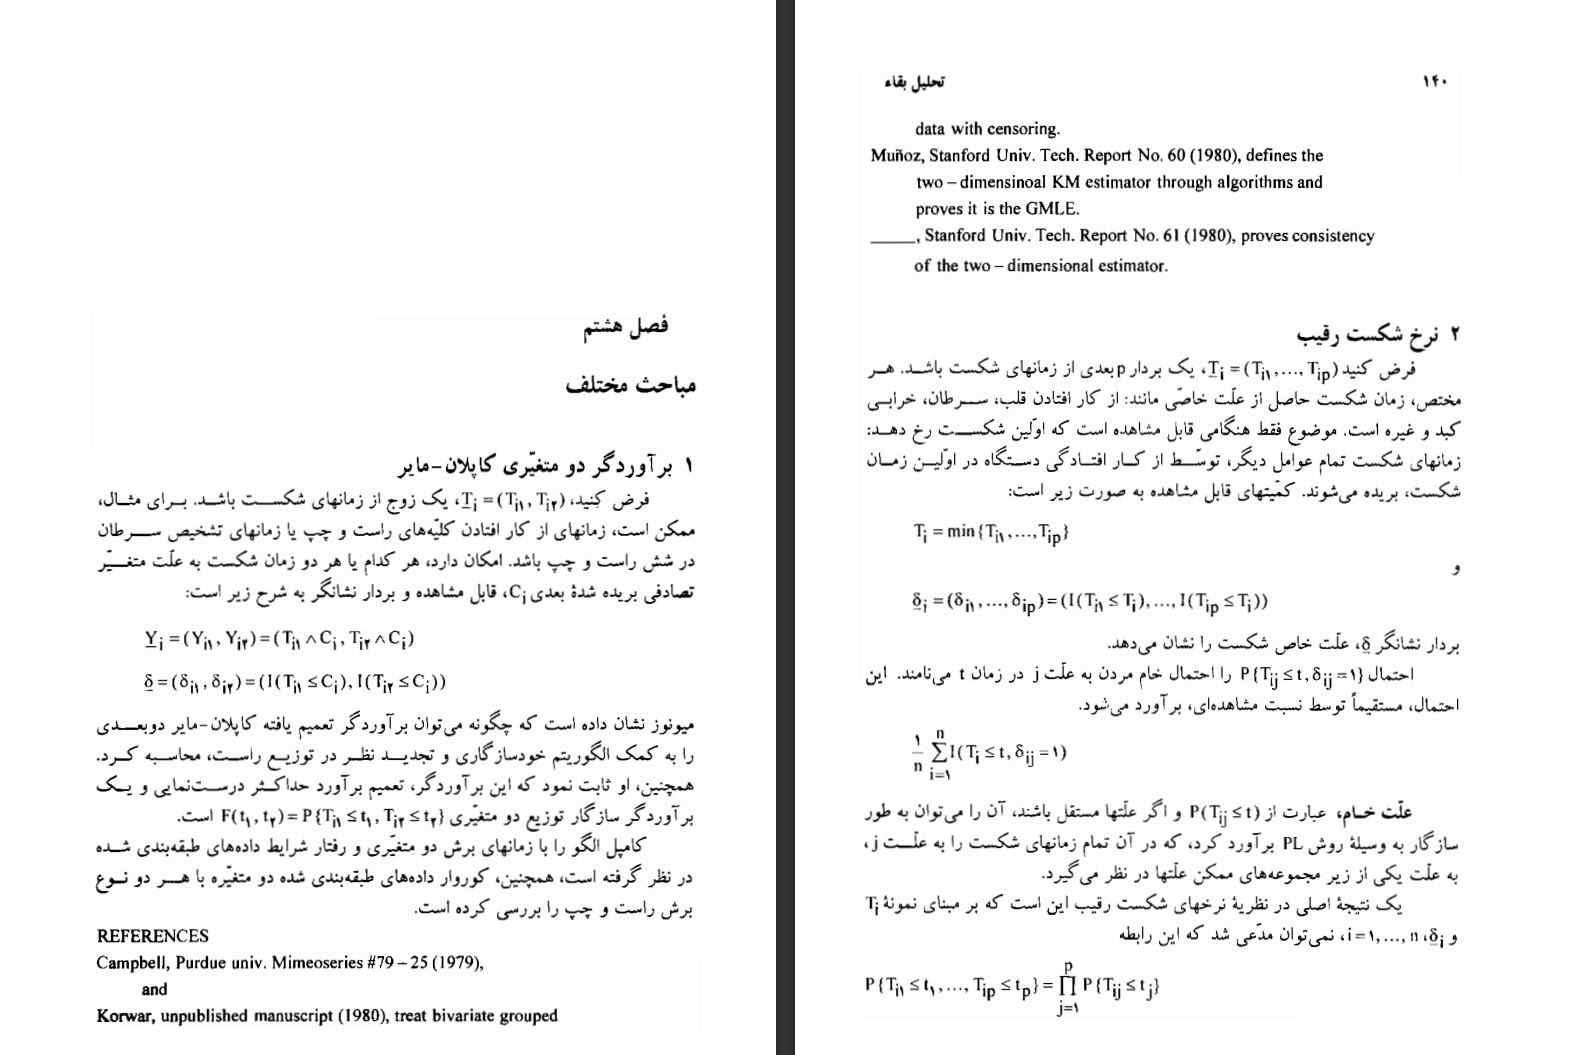 فصل هشتم
مباحث مختلف
۱ برآوردگر دو متغیّری کاپلان-مایر
فرض کنید، T_i = (T_i۱, T_i۲)، یک زوج از زمانهای شکست باشد. برای مثال،
ممکن است، زمانهای از کار افتادن کلیّه‌های راست و چپ یا زمانهای تشخیص سرطان
در شش راست و چپ باشد. امکان دارد، هر کدام یا هر دو زمان شکست به علّت متغیّر
تصادفی بریده شدۀ بعدی C_i، قابل مشاهده و بردار نشانگر به شرح زیر است:
Y_i = (Y_i۱, Y_i۲) = (T_i۱ ∧ C_i, T_i۲ ∧ C_i)
δ = (δ_i۱, δ_i۲) = (I(T_i۱ ≤ C_i), I(T_i۲ ≤ C_i))
میونوز نشان داده است که چگونه می‌توان برآوردگر تعمیم یافته کاپلان-مایر دوبعدی
را به کمک الگوریتم خودسازگاری و تجدید نظر در توزیع راست، محاسبه کرد.
همچنین، او ثابت نمود که این برآوردگر، تعمیم برآورد حداکثر درست‌نمایی و یک
برآوردگر سازگار توزیع دو متغیّری F(t_۱, t_۲) = P{T_i۱ ≤ t_۱, T_i۲ ≤ t_۲} است.
کامپل الگو را با زمانهای برش دو متغیّری و رفتار شرایط داده‌های طبقه‌بندی شده
در نظر گرفته است، همچنین، کوروار داده‌های طبقه‌بندی شده دو متغیّره با هر دو نوع
برش راست و چپ را بررسی کرده است.
REFERENCES
Campbell, Purdue univ. Mimeoseries #79 – 25 (1979),
and
Korwar, unpublished manuscript (1980), treat bivariate grouped
تحلیل بقاء ۱۴۰
data with censoring.
Muñoz, Stanford Univ. Tech. Report No. 60 (1980), defines the
two – dimensinoal KM estimator through algorithms and
proves it is the GMLE.
_____, Stanford Univ. Tech. Report No. 61 (1980), proves consistency
of the two – dimensional estimator.
۲ نرخ شکست رقیب
فرض کنید T_i = (T_i۱, ..., T_ip)، یک بردار p بعدی از زمانهای شکست باشد. هر
مختص، زمان شکست حاصل از علّت خاصّی مانند: از کار افتادن قلب، سرطان، خرابی
کبد و غیره است. موضوع فقط هنگامی قابل مشاهده است که اوّلین شکست رخ دهد:
زمانهای شکست تمام عوامل دیگر، توسّط از کار افتادگی دستگاه در اوّلین زمان
شکست، بریده می‌شوند. کمّیتهای قابل مشاهده به صورت زیر است:
T_i = min{T_i۱, ..., T_ip}
و
δ_i = (δ_i۱, ..., δ_ip) = (I(T_i۱ ≤ T_i), ..., I(T_ip ≤ T_i))
بردار نشانگر δ، علّت خاص شکست را نشان می‌دهد.
احتمال P{T_ij ≤ t, δ_ij = ۱} را احتمال خام مردن به علّت j در زمان t می‌نامند. این
احتمال، مستقیماً توسط نسبت مشاهده‌ای، برآورد می‌شود.
۱/n ∑_{i=۱}^{n} I(T_i ≤ t, δ_ij = ۱)
علّت خام، عبارت از P(T_ij ≤ t) و اگر علّتها مستقل باشند، آن را می‌توان به طور
سازگار به وسیلۀ روش PL برآورد کرد، که در آن تمام زمانهای شکست را به علّت j،
به علّت یکی از زیر مجموعه‌های ممکن علّتها در نظر می‌گیرد.
یک نتیجۀ اصلی در نظریۀ نرخهای شکست رقیب این است که بر مبنای نمونۀ T_i
و δ_i، i = ۱, ..., n، نمی‌توان مدّعی شد که این رابطه
P{T_i۱ ≤ t_۱, ..., T_ip ≤ t_p} = ∏_{j=۱}^{p} P{T_ij ≤ t_j}